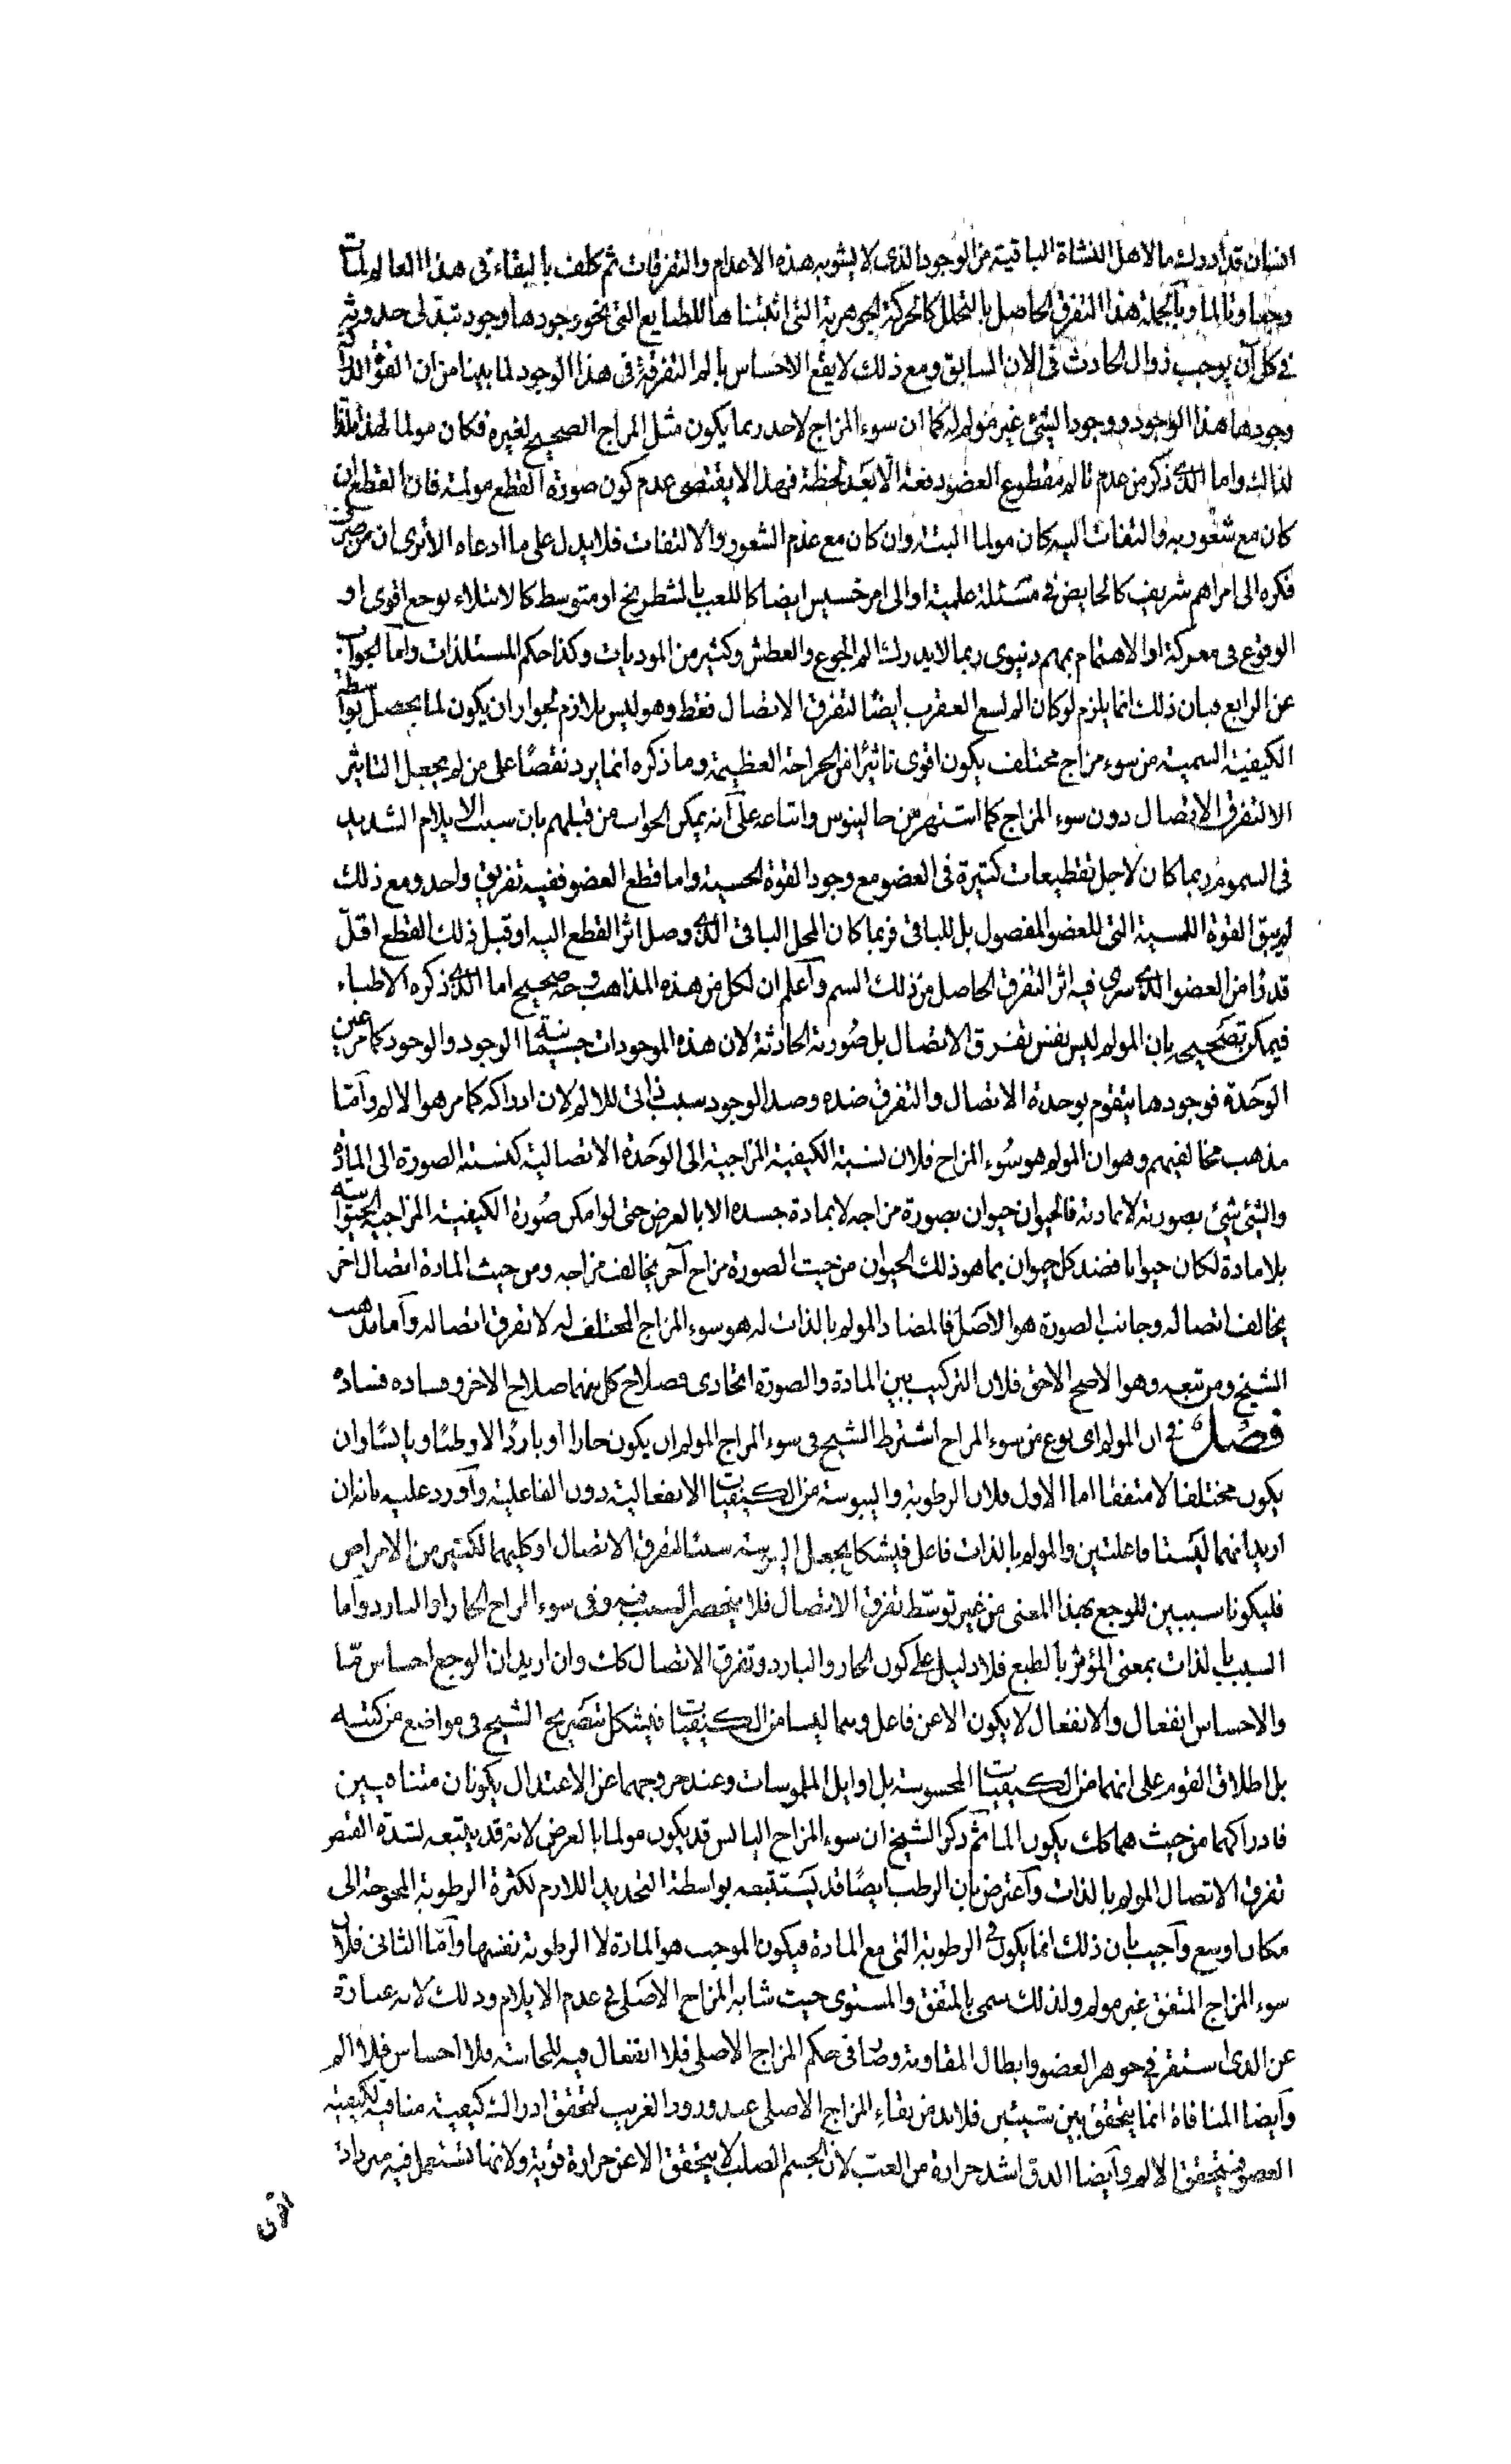 انسان قد ادرك ما لاهل النشاة الباقية من الوجود الذى لا يشوبه هذه الاعدام والتفرقات ثم كلف بالبقاء فى هذا العالم لمات
وجعا و تالما وبالجملة هذا التفرق الحاصل بالتحلل كالحركة الجوهرية التى اثبتناها للطبايع التى نحو وجودها وجود تبدلى حدوثه
فى كل آن يوجب زوال الحادث فى الان السابق ومع ذلك لا يقع الاحساس بالم التفرقة فى هذا الوجود لما بينا من ان القوة
وجودها هذا الوجود ووجود الشئ غير مولم له كما ان سوء المزاج لاحد ربما يكون مثل المزاج الصحيح لغيره فكان مولما لهذا
لذلك واما الذى ذكر من عدم تالم مقطوع العضو دفعة الا بعد لحظة فهذا لا يقتضى عدم كون صورة القطع مولمة فان القطع ان
كان مع شعور به والتفات اليه كان مولما البتة وان كان مع عدم الشعور والالتفات فلا يدل على ما ادعاه الا ترى ان من صرف
فكره الى امر اهم شريف كالخايض فى مسئلة علمية او الى امر خسيس ايضا كاللعب بالشطرنج او متوسط كالابتلاء بوجع اقوى او
الوقوع فى معركة او الاهتمام بمهم دنيوى ربما لا يدرك الم الجوع والعطش وكثير من الموذيات وكذا حكم المستلذات واما الجواب
عن الرابع فبان ذلك انما يلزم لو كان الم لسع العقرب ايضا لتفرق الاتصال فقط وهو ليس بلازم لجواز ان يكون لما يحصل بواسطة
الكيفية السمية من سوء مزاج مختلف يكون اقوى تاثيرا من الجراحة العظيمة وما ذكره انما يرد نقضا على من لم يجعل التاثير
الا لتفرق الاتصال دون سوء المزاج كما اشتهر من جالينوس واتباعه على انه يمكن الجواب من قبلهم بان سبب الايلام الشديد
فى السموم ربما كان لاجل تقطيعات كثيرة فى العضو مع وجود القوة الحسية واما قطع العضو ففيه تفريق واحد ومع ذلك
لم يبق القوة اللمسية التى للعضو المفصول بل للباقى فربما كان المحل الباقى الذى وصل اثر القطع اليه او قبل ذلك القطع اقل
قدرا من العضو الذى سرى فيه اثر التفرق الحاصل من ذلك السم واعلم ان لكل من هذه المذاهب وجه صحيح اما الذى ذكره الاطباء
فيمكن تصحيحه بان المولم ليس نفس تفرق الاتصال بل صورته الحادثة لان هذه الموجودات جسمانية الوجود والوجود كما مر عين
الوحدة فوجودها يتقوم بوحدة الاتصال والتفرق ضده وضد الوجود سبب ذاتى للالم لان ادراكه كما مر هو الالم واما
مذهب مخالفيهم وهو ان المولم هو سوء المزاج فلان نسبة الكيفية المزاجية الى الوحدة الاتصالية كنسبة الصورة الى المادة
والشئ شئ بصورته لا بمادته فالحيوان حيوان بصورة مزاجه لا بمادة جسده الا بالعرض حتى لو امكن صورة الكيفية المزاجية الحيوانية
بلا مادة لكان حيوانا فضد كل حيوان بما هو ذلك الحيوان من حيث الصورة مزاج آخر يخالف مزاجه ومن حيث المادة اتصال اخر
يخالف اتصاله وجانب الصورة هو الاصل فالمضاد المولم بالذات له هو سوء المزاج المختلف له لا تفرق اتصاله واما مذهب
الشيخ ومن تبعه وهو الاصح الاحق فلان التركيب بين المادة والصورة اتحادى فصلاح كل منهما صلاح الاخر وفساده فساده
فصل فى ان المولم اى نوع من سوء المزاج اشترط الشيخ فى سوء المزاج المولم ان يكون حارا او باردا لا رطبا ويابسا وان
يكون مختلفا لا متفقا اما الاول فلان الرطوبة واليبوسة من الكيفيات الانفعالية دون الفاعلية واورد عليه بانه ان
اريد انهما ليستا فاعلتين والمولم بالذات فاعل فيشكل بجعل اليبوسة سببا لتفرق الاتصال او كليهما لكثير من الامراض
فليكونا سببين للوجع بهذا المعنى من غير توسط تفرق الاتصال فلا ينحصر السبب فيه وفى سوء المزاج الحار او البارد واما
السبب بالذات بمعنى المؤثر بالطبع فلا دليل على كون الحار والبارد وتفرق الاتصال كك وان اريد ان الوجع احساس ما
والاحساس انفعال والانفعال لا يكون الا عن فاعل وهما ليسا من الكيفيات فيشكل بتصريح الشيخ فى مواضع من كتبه
بل اطلاق القوم على انهما من الكيفيات المحسوسة بل اوايل الملموسات وعند خروجهما عن الاعتدال يكونان متنافيين
فادراكهما من حيث هما كك يكون الما ثم ذكر الشيخ ان سوء المزاج اليابس قد يكون مولما بالعرض لانه قد يتبعه لشدة القبض
تفرق الاتصال المولم بالذات واعترض بان الرطب ايضا قد يستتبعه بواسطة التمديد اللازم لكثرة الرطوبة المحوجة الى
مكان اوسع واجيب بان ذلك انما يكون فى الرطوبة التى مع المادة فيكون الموجب هو المادة لا الرطوبة نفسها واما الثانى فلان
سوء المزاج المتفق غير مولم ولذلك سمى بالمتفق والمستوى حيث شابه المزاج الاصلى فى عدم الايلام وذلك لانه عبارة
عن الذى استقر فى جوهر العضو وابطال المقاومة وصار فى حكم المزاج الاصلى فلا انفعال فيه للحاسة فلا احساس فلا الم
وايضا المنافاة انما يتحقق بين شيئين فلا بد من بقاء المزاج الاصلى عند ورود الغريب لتحقق ادراك كيفية منافية لكيفية
العضو فيتحقق الالم وايضا الدق اشد حرارة من الغب لان الجسم الصلب لا يتحقق الا عن حرارة قوية ولانها تستعمل فيه مبردات
اقوى